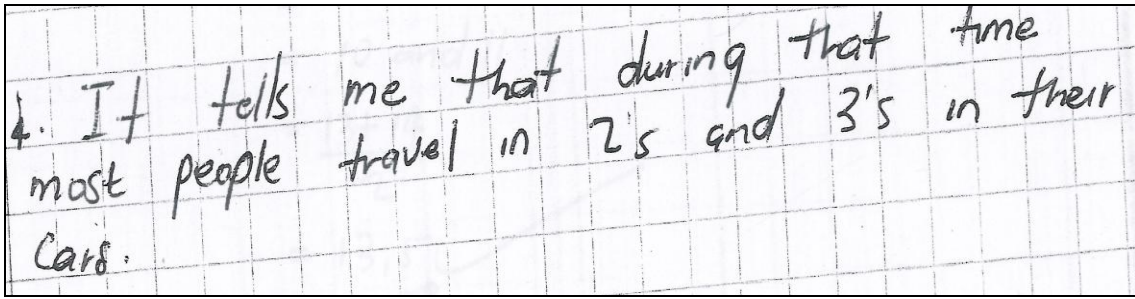 4. It tells me that during that time
most people travel in 2's and 3's in their
cars.